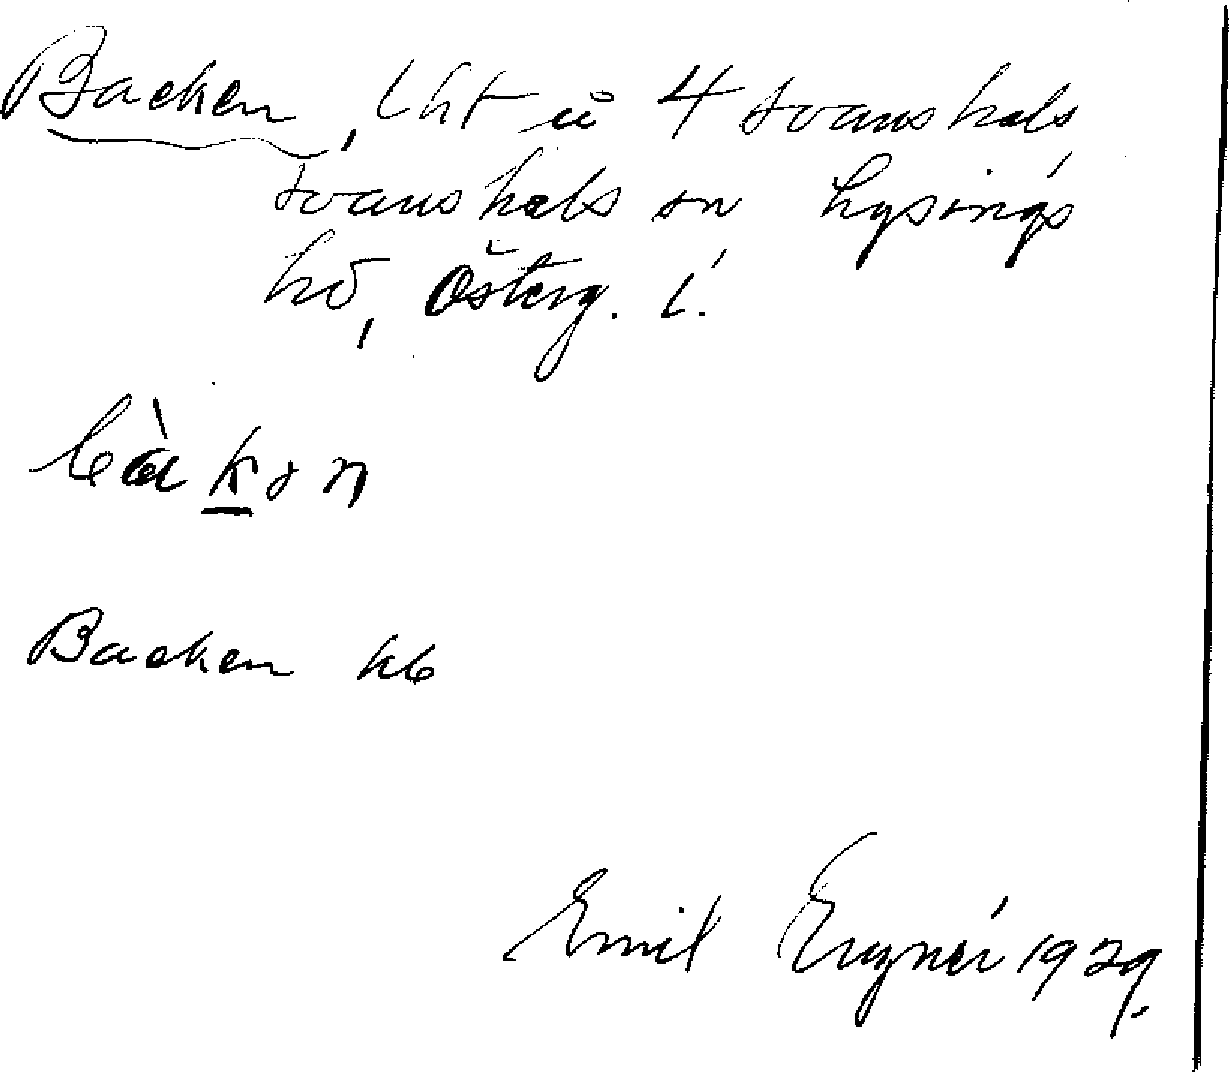 Backen, lht u 4 Svanshals
Svanshals sn Lysings
hd, Österg. l.
bàkən
Backen kb
Emil 1929.